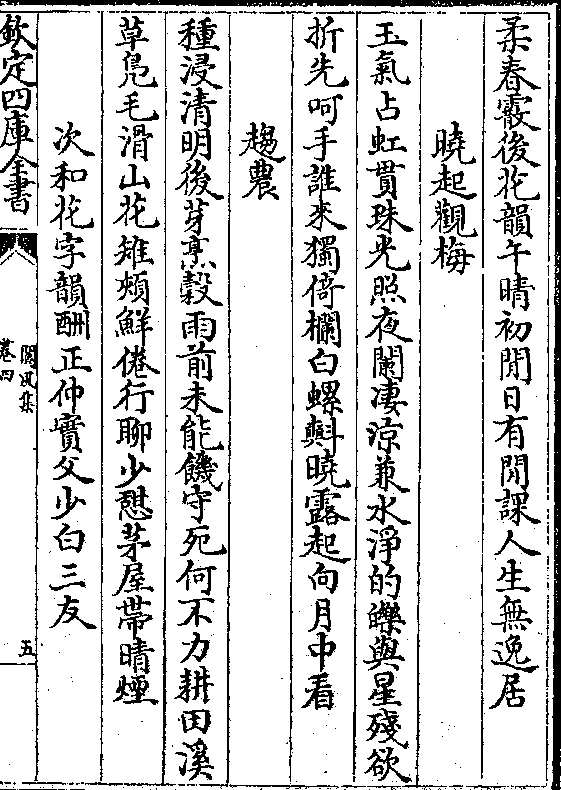 柔春霰後花韻午晴初閒日有閒課人生無逸居
曉起觀梅
玉氣占虹貫珠光照夜闌凄涼兼水淨的皪與星殘欲
折先呵手誰來獨倚欄白螺㪺曉露起向月中看
趨農
種浸清明後芽烹穀雨前未能饑守死何不力耕田溪
草鳬毛滑山花雉頰鮮倦行聊少憇茅屋帶晴煙
次和花字韻酬正仲實父少白三友
欽定四庫全書
閬風集
卷四
五